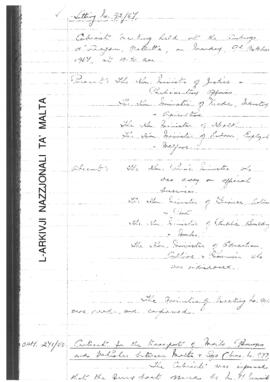 Sitting No. 92/67.
Cabinet Meeting held at the Auberge
d'Aragon, Valletta, on Monday, 9th October
1967, at
Present: The Hon. Minister of Justice &
Parliamentary Affairs
The Hon. Minister of Trade, Industry
& Agriculture
The Hon. Minister of Health
The Hon. Minister of Labour, Employment
& Welfare
Absent: The Hon. Prime Minister who
was away on official
business.
The Hon. Minister of Finance, Customs
& Port
The Hon. Minister of Public Building
& Works
The Hon. Minister of Education,
Culture & Tourism who
was indisposed.
The Minutes of Meeting No.
were read and confirmed.
Contract for the Transport of Mails, Passengers
and Vehicles between Malta & Gozo
The Cabinet was informed
that the
L-ARKIVJI NAZZJONALI TA' MALTA